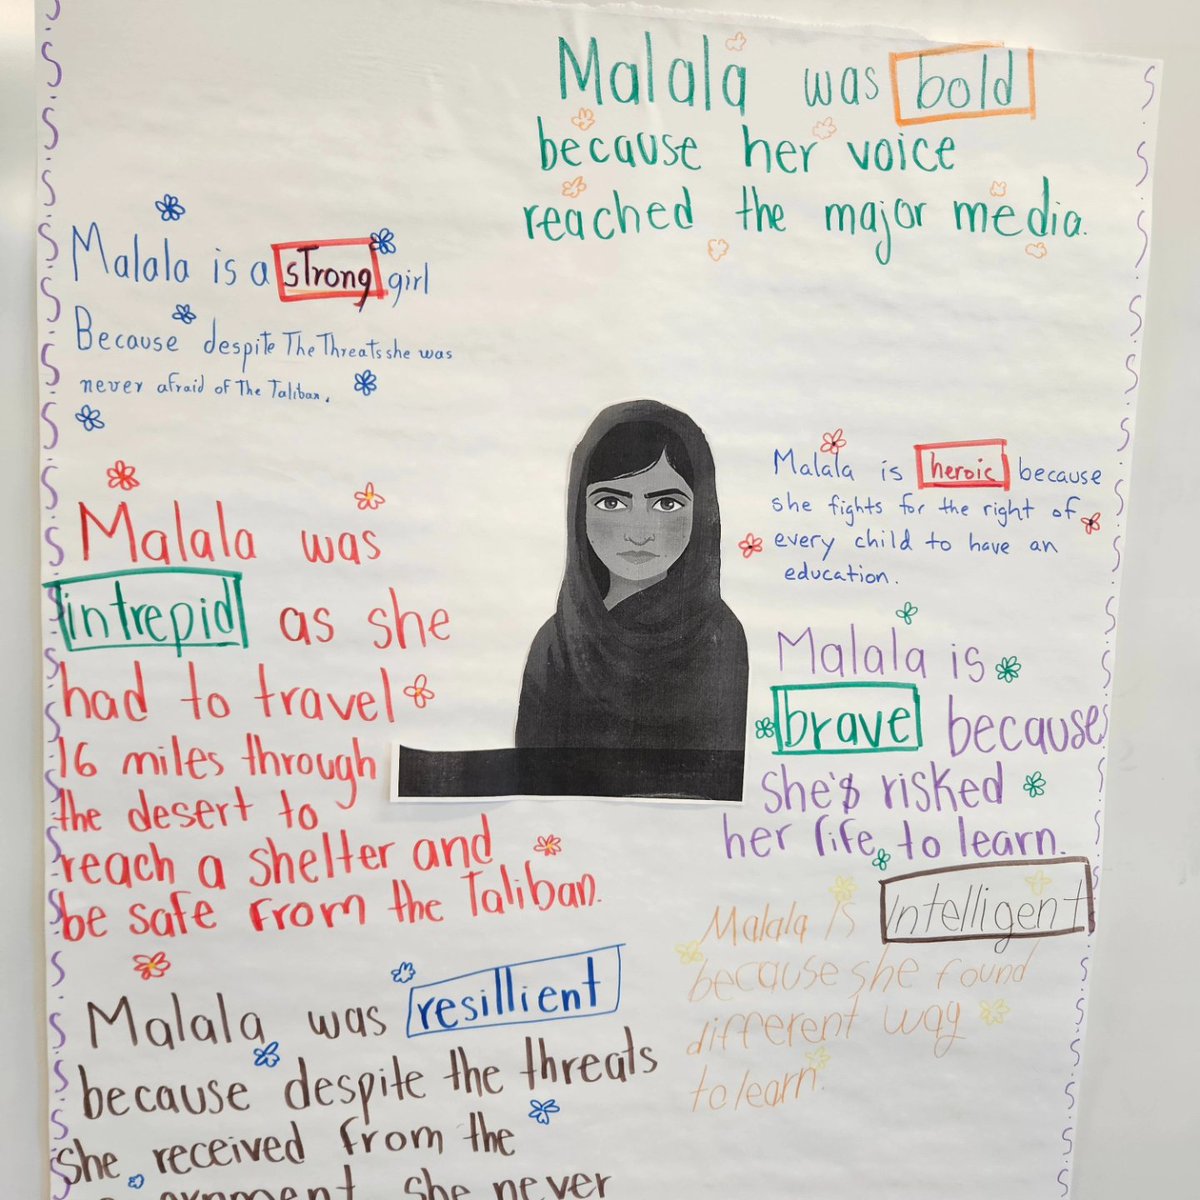 Malala was bold
because her voice
reached the major media.
Malala is a strong girl
Because despite The Threats she was
never afraid of The Taliban.
Malala was
intrepid as she
had to travel
16 miles through
the desert to
reach a shelter and
be safe from the Taliban.
Malala is heroic because
she fights for the right of
every child to have an
education.
Malala is
brave because
she's risked
her life to learn.
Malala is Intelligent
because she found
different way
to learn.
Malala was resillient
because despite the threats
She received from the
she never